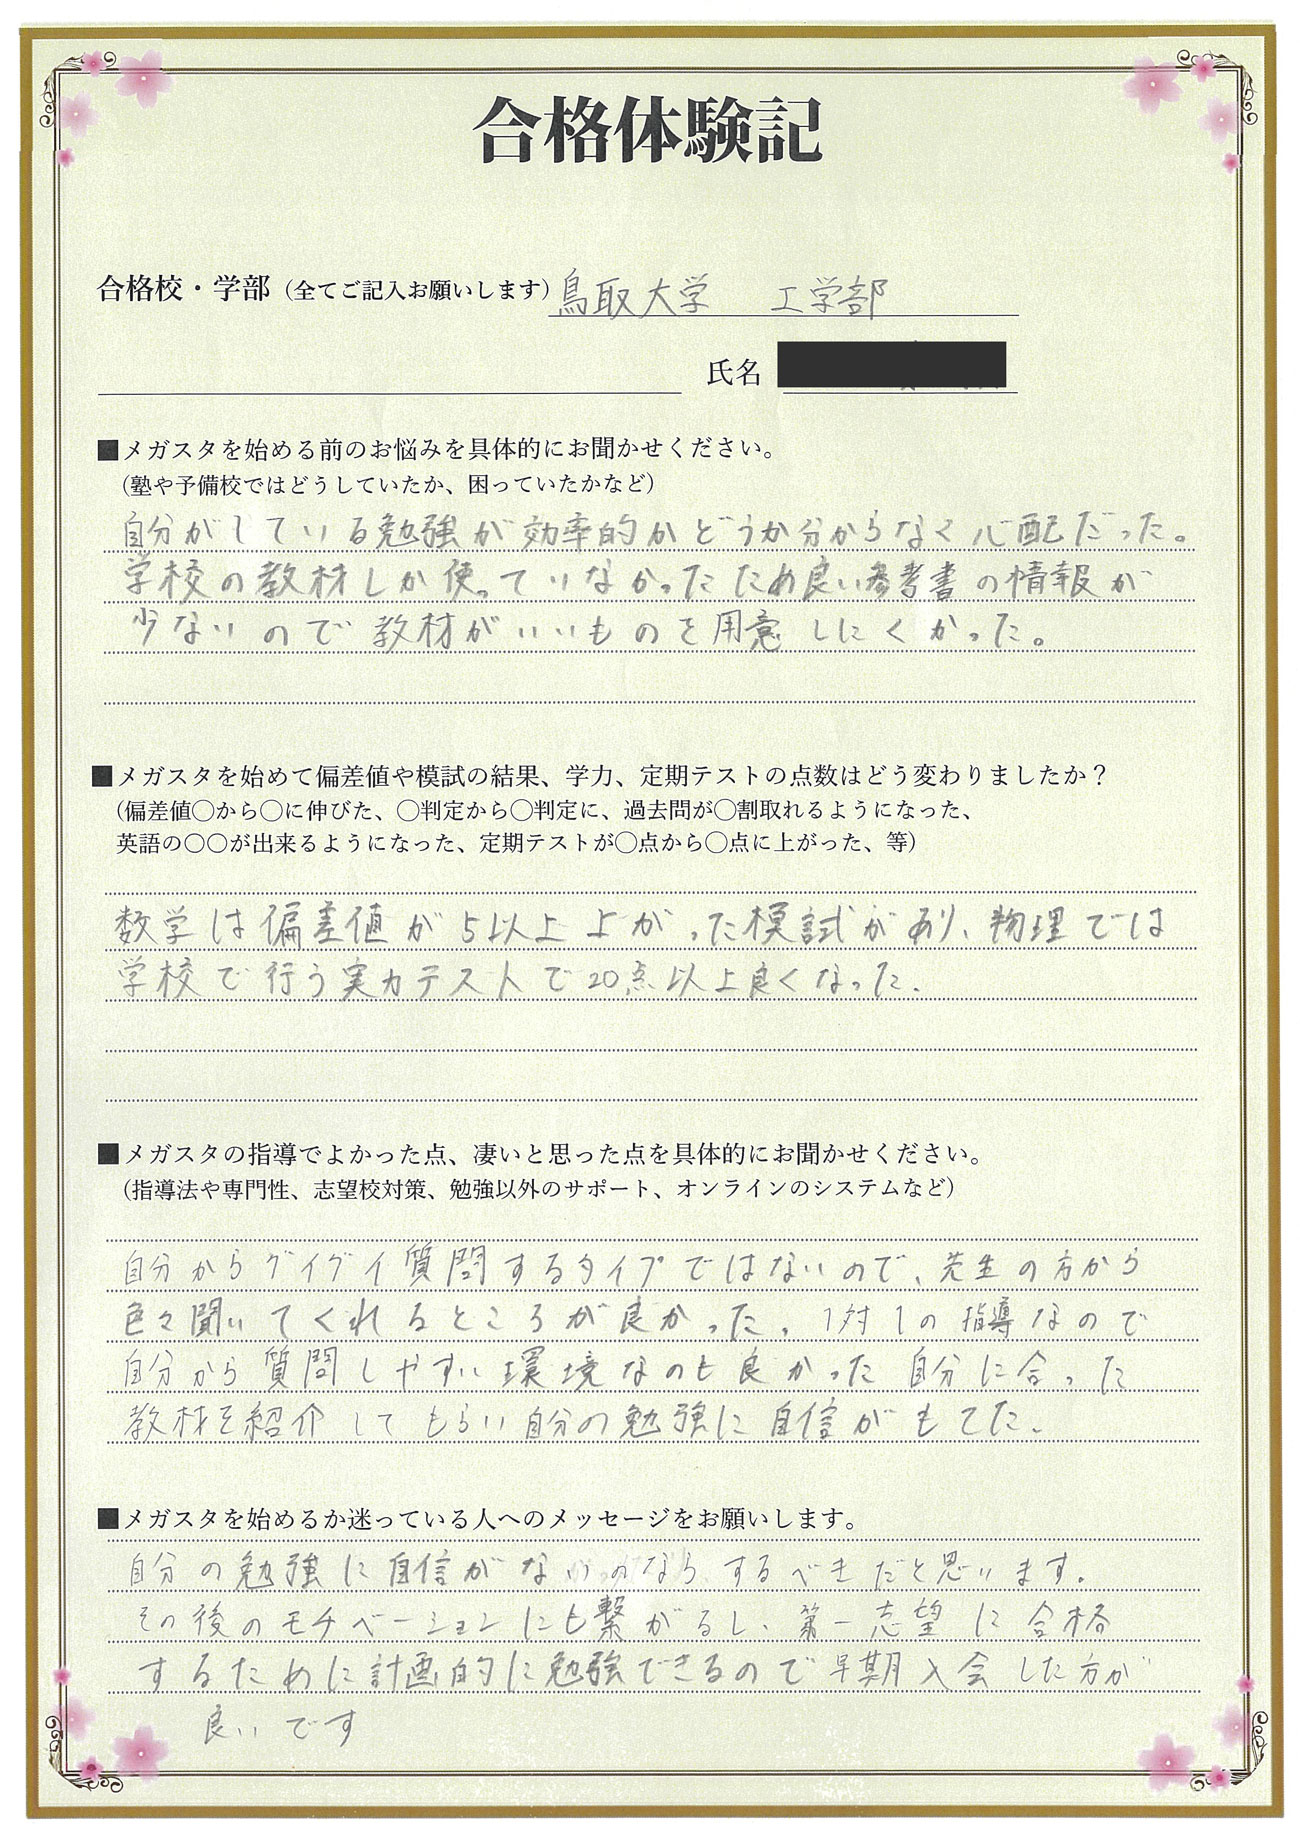 合格体験記
合格校・学部（全てご記入お願いします）鳥取大学 工学部
氏名
■メガスタを始める前のお悩みを具体的にお聞かせください。
（塾や予備校ではどうしていたか、困っていたかなど）
自分がしている勉強が効率的かどうか分からなく心配だった。
学校の教材しか使っていなかったため良い参考書の情報が
少ないので教材がいいものを用意しにくかった。
■メガスタを始めて偏差値や模試の結果、学力、定期テストの点数はどう変わりましたか？
（偏差値〇から〇に伸びた、〇判定から〇判定に、過去問が〇割取れるようになった、
英語の〇〇が出来るようになった、定期テストが〇点から〇点に上がった、等）
数学は偏差値が5以上上がった模試があり、物理では
学校で行う実力テストで20点以上良くなった.
■メガスタの指導でよかった点、凄いと思った点を具体的にお聞かせください。
（指導法や専門性、志望校対策、勉強以外のサポート、オンラインのシステムなど）
自分からグイグイ質問するタイプではないので、先生の方から
色々聞いてくれるところが良かった。1対1の指導なので
自分から質問しやすい環境なのも良かった 自分に合った
教材を紹介してもらい自分の勉強に自信がもてた.
■メガスタを始めるか迷っている人へのメッセージをお願いします。
自分の勉強に自信がないのなら、するべきだと思います.
その後のモチベーションにも繋がるし、第一志望に合格
するために計画的に勉強できるので早期入会した方が
良いです